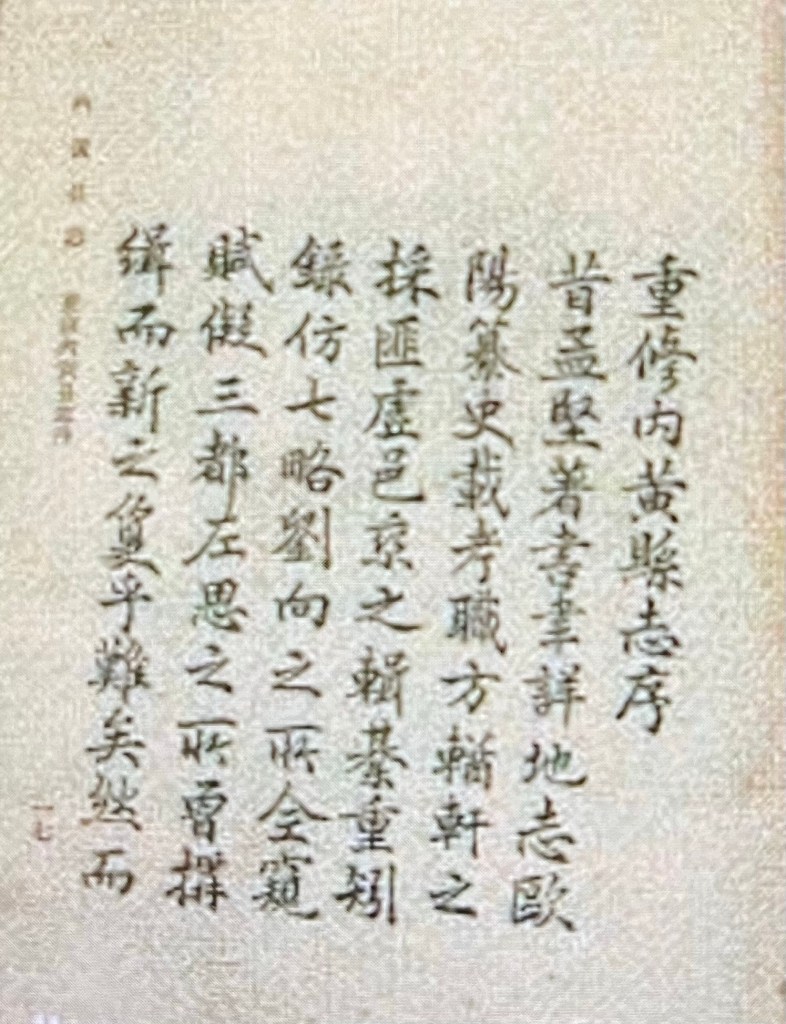 重修内黄縣志序
昔孟堅著書聿詳地志歐
陽纂史載考職方輶軒之
採匪虚邑京之輯綦重矧
錄仿七略劉向之所仝窺
賦儗三都左思之所曾撰
緝而新之夐乎難矣然而
内黄縣志
一七